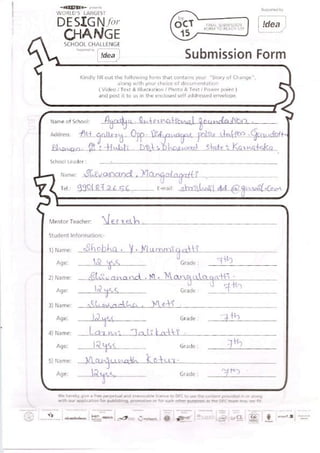 WORLD'S LARGEST
DESIGN for
CHANGE
SCHOOL CHALLENGE
Supported by
idea
OCT
15
Supported by
idea
Submission Form
Kindly fill out the following form that contains your "Story of Change",
along with your choice of documentation
( Video / Text & Illustration / Photo & Text / Power point )
and post it to us in the enclosed self addressed envelope.
1
Name of School: International foundation
Address Art gallery, Opp. police station,
Hubli Dist: Dharwad State: Karnataka
School Leader :
2
Name: Shivanand. Mangalagatti
Tel: E-mail
3
Mentor Teacher: Veeresh
Student Information:-
1) Name: Shobha. Y. Mummigatti
Age: 12 yrs Grade : 7th
2) Name: Shivanand. M. Mangulagatti.
Age: 12 yrs Grade : 7th
3) Name: Sharadha. Moti
Age: 12 yrs Grade : 7th
4) Name: Laxmi Talikatti.
Age: 12 yrs Grade : 7th
5) Name: Manjunath Kotur
Age: 12 yrs Grade : 7th
We hereby give a free perpetual and irrevocable licence to DFC to use the content provided in or along
with our application for publishing, promotion or for such other purposes as the DFC team may see fit.